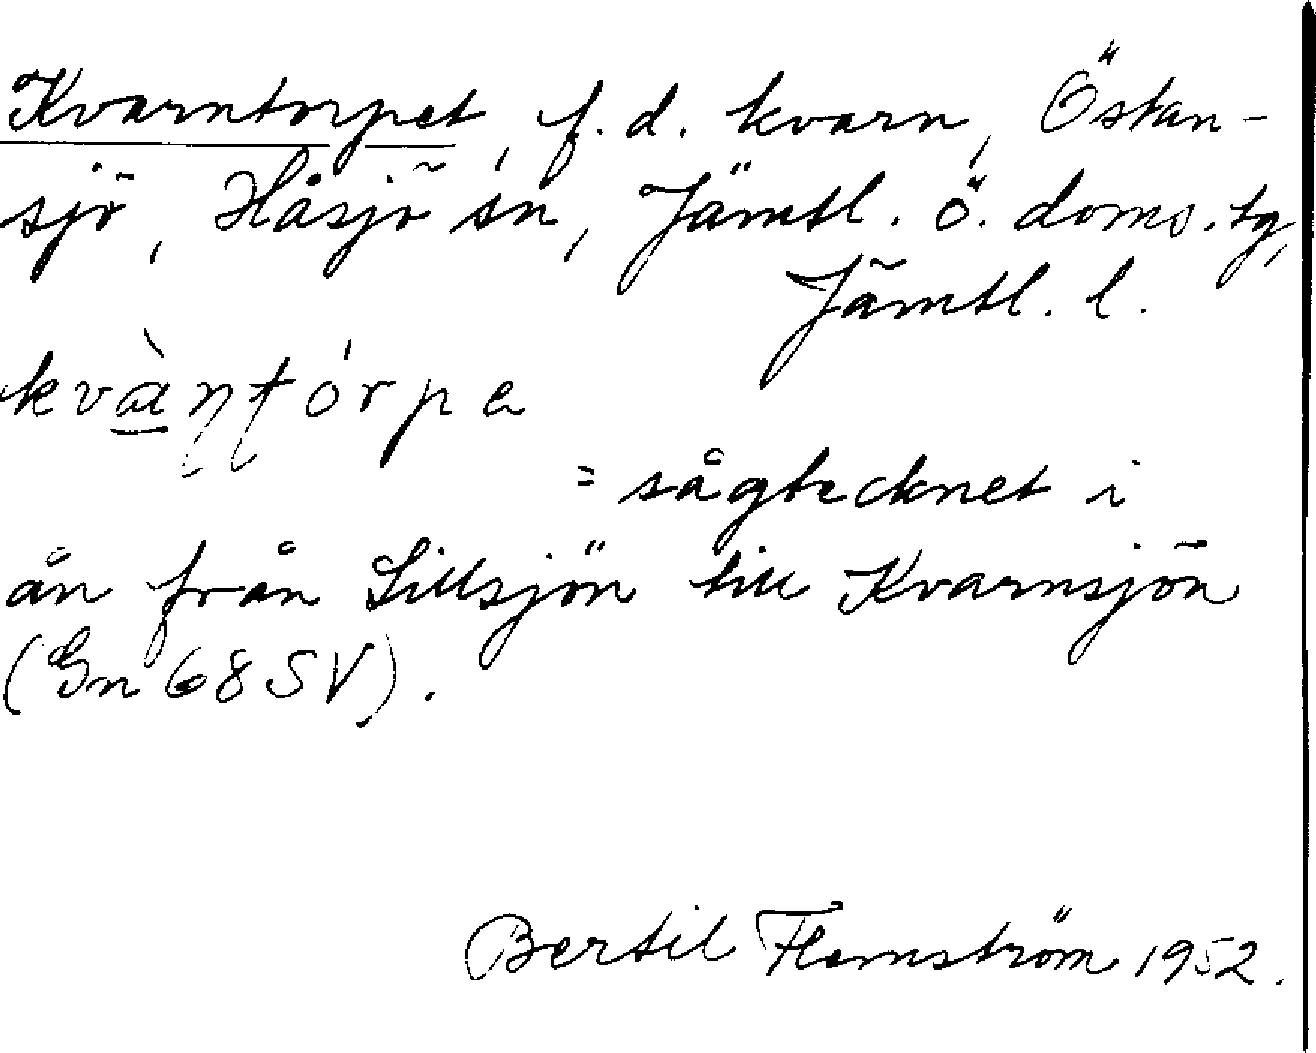 Kvarntorpet, f.d. kvarn, Östan-
sjö, Håsjö sn, Jämtl. ö. doms. tg,
Jämtl. l.
kvàṇṭórpe
= sågtecknet i
ån från Lillsjön till Kvarnsjön
(Gn 68 SV).
Bertil Flemström 1952.